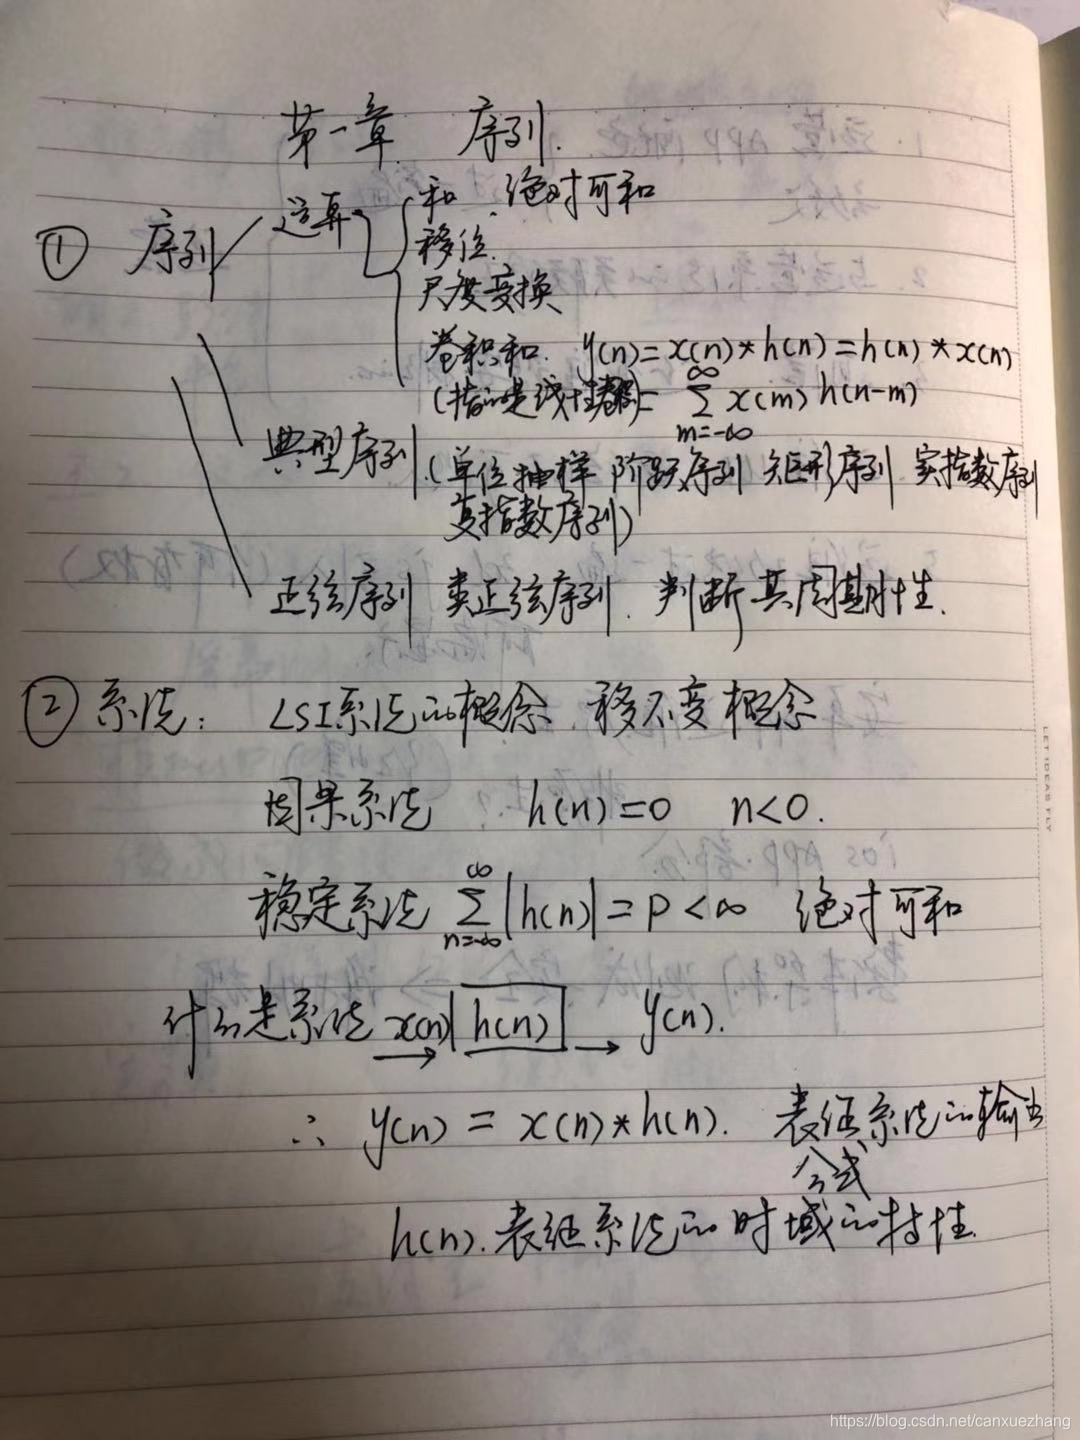 第一章 序列.
① 序列 运算 和. 绝对可和
移位.
尺度变换
卷积和. y(n)=x(n)*h(n)=h(n)*x(n)
(指的是线性卷积)= ∑_{m=-∞}^{∞} x(m) h(n-m)
典型序列 (单位抽样 阶跃序列 矩形序列 实指数序列
复指数序列)
正弦序列 类正弦序列. 判断其周期性.
② 系统: LSI系统的概念 移不变概念
因果系统 h(n)=0 n<0.
稳定系统 ∑_{n=-∞}^{∞} |h(n)|=P<∞ 绝对可和
什么是系统 x(n) → h(n) → y(n).
∴ y(n) = x(n)*h(n). 表征系统的输出
公式
h(n). 表征系统的时域的特性.
LET IDEAS FLY
https://blog.csdn.net/canxuezhang